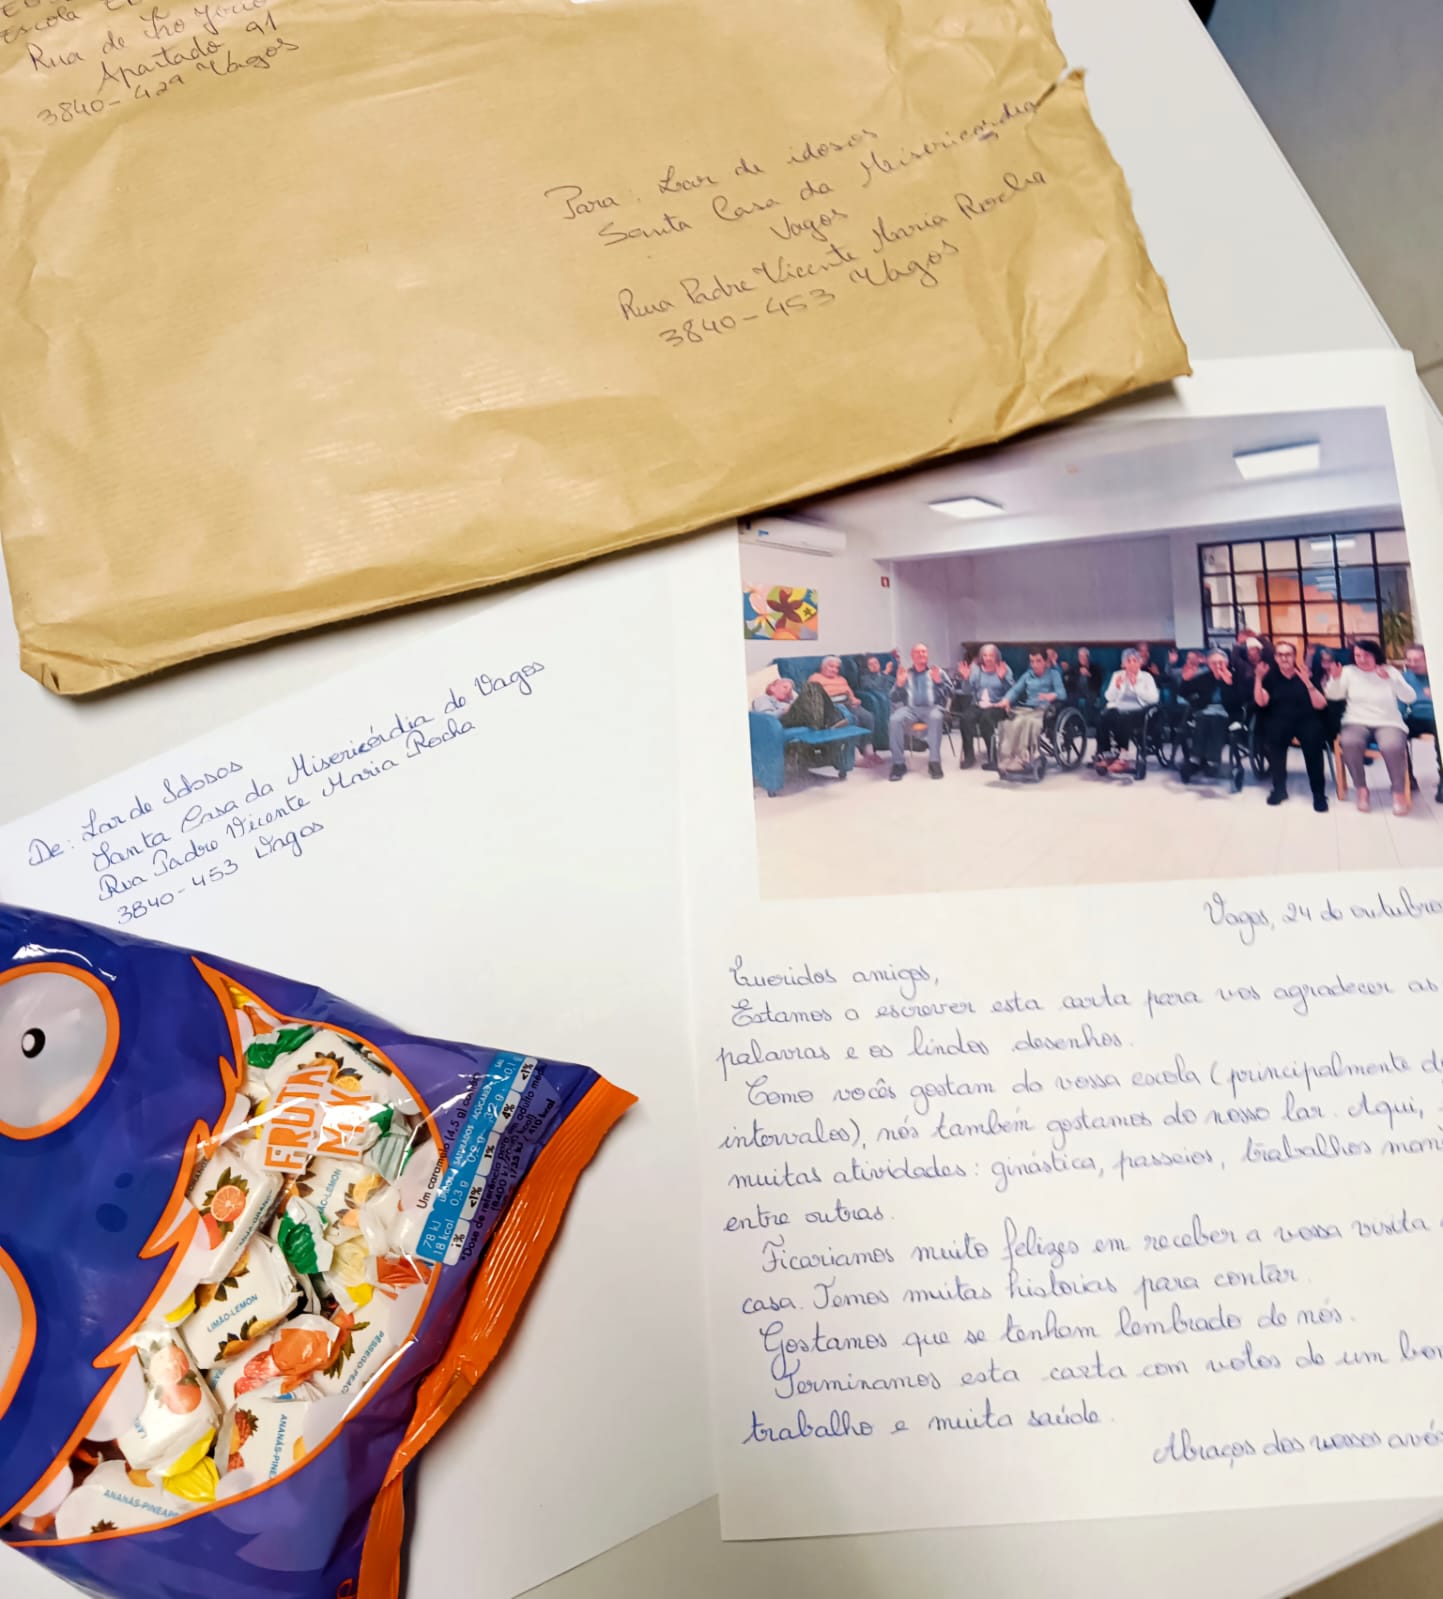 Escola
Rua de São
Apartado 91
3840-429 Vagos
Para: Lar de idosos
Santa Casa da Misericordia
Vagos
Rua Padre Vicente Maria Rocha
3840-453 Vagos
De: Lar de Idosos
Santa Casa da Misericórdia de Vagos
Rua Padre Vicente Maria Rocha
3840-453 Vagos
Vagos, 24 de outubro
Queridos amigos,
Estamos a escrever esta carta para vos agradecer as
palavras e os lindos desenhos.
Como vocês gostam da vossa escola (principalmente d
intervalos), nós também gostamos do nosso lar. Aqui,
muitas atividades: ginástica, passeios, trabalhos man
entre outras.
Ficariamos muito felizes em receber a vossa visita
casa. Temos muitas historias para contar.
Gostamos que se tenham lembrado de nós.
Terminamos esta carta com votos de um bom
trabalho e muita saúde.
Abraços dos vossos avós
FRUTA
MIX
Um caramelo (4,5 g) contém
78 kJ
18 kcal
1%
0,3 g
<1%
SATURADOS
0,2 g
1%
AÇÚCARES
4%
SAL
<0,1
<1%
LIMÃO-LEMON
PÊSSEGO-PEAC
ANANÁS-PINE
ANANÁS-PINEAPP